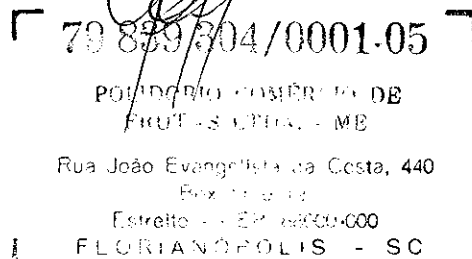 79 839 304/0001-05
COMÉRCIO DE
FRUTAS LTDA. - ME
Rua João Evangelista da Costa, 440
Box
Estreito - CEP -000
FLORIANÓPOLIS - SC